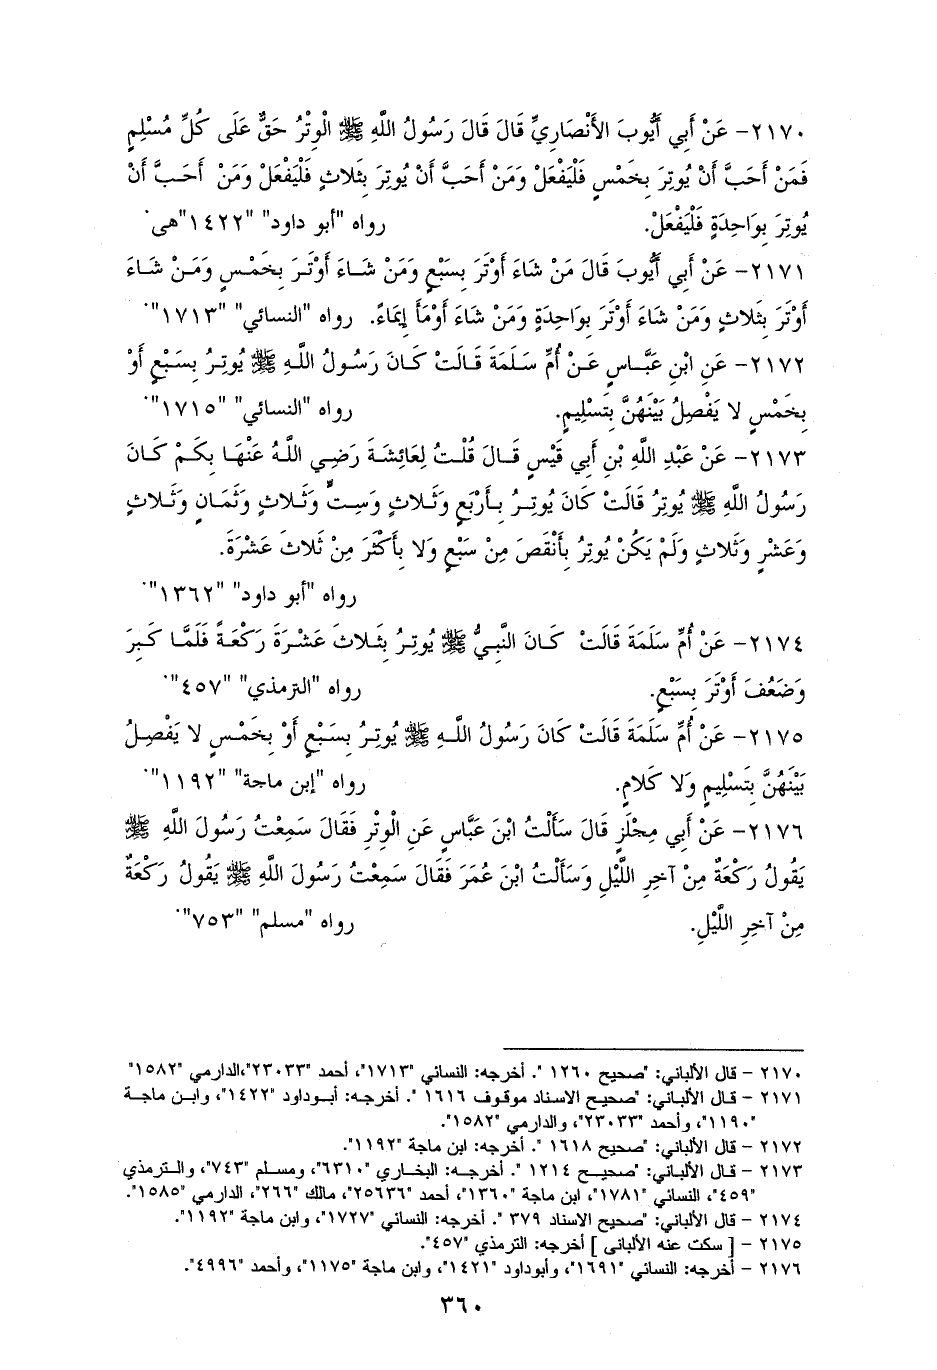 ٢١٧٠- عَنْ أَبِي أَيُّوبَ الأَنْصَارِيِّ قَالَ قَالَ رَسُولُ اللَّهِ ﷺ الْوِتْرُ حَقٌّ عَلَى كُلِّ مُسْلِمٍ
فَمَنْ أَحَبَّ أَنْ يُوتِرَ بِخَمْسٍ فَلْيَفْعَلْ وَمَنْ أَحَبَّ أَنْ يُوتِرَ بِثَلاثٍ فَلْيَفْعَلْ وَمَنْ أَحَبَّ أَنْ
يُوتِرَ بِوَاحِدَةٍ فَلْيَفْعَلْ. رواه "أبو داود" "١٤٢٢"هى.
٢١٧١- عَنْ أَبِي أَيُّوبَ قَالَ مَنْ شَاءَ أَوْتَرَ بِسَبْعٍ وَمَنْ شَاءَ أَوْتَرَ بِخَمْسٍ وَمَنْ شَاءَ
أَوْتَرَ بِثَلاثٍ وَمَنْ شَاءَ أَوْتَرَ بِوَاحِدَةٍ وَمَنْ شَاءَ أَوْمَأَ إِيمَاءً. رواه "النسائي" "١٧١٣".
٢١٧٢- عَنِ ابْنِ عَبَّاسٍ عَنْ أُمِّ سَلَمَةَ قَالَتْ كَانَ رَسُولُ اللَّهِ ﷺ يُوتِرُ بِسَبْعٍ أَوْ
بِخَمْسٍ لا يَفْصِلُ بَيْنَهُنَّ بِتَسْلِيمٍ. رواه "النسائي" "١٧١٥".
٢١٧٣- عَنْ عَبْدِ اللَّهِ بْنِ أَبِي قَيْسٍ قَالَ قُلْتُ لِعَائِشَةَ رَضِي اللَّهُ عَنْهَا بِكَمْ كَانَ
رَسُولُ اللَّهِ ﷺ يُوتِرُ قَالَتْ كَانَ يُوتِرُ بِأَرْبَعٍ وَثَلاثٍ وَسِتٍّ وَثَلاثٍ وَثَمَانٍ وَثَلاثٍ
وَعَشْرٍ وَثَلاثٍ وَلَمْ يَكُنْ يُوتِرُ بِأَنْقَصَ مِنْ سَبْعٍ وَلا بِأَكْثَرَ مِنْ ثَلاثَ عَشْرَةَ.
رواه "أبو داود" "١٣٦٢".
٢١٧٤- عَنْ أُمِّ سَلَمَةَ قَالَتْ كَانَ النَّبِيُّ ﷺ يُوتِرُ بِثَلاثَ عَشْرَةَ رَكْعَةً فَلَمَّا كَبِرَ
وَضَعُفَ أَوْتَرَ بِسَبْعٍ. رواه "الترمذي" "٤٥٧".
٢١٧٥- عَنْ أُمِّ سَلَمَةَ قَالَتْ كَانَ رَسُولُ اللَّهِ ﷺ يُوتِرُ بِسَبْعٍ أَوْ بِخَمْسٍ لا يَفْصِلُ
بَيْنَهُنَّ بِتَسْلِيمٍ وَلا كَلامٍ. رواه "إبن ماجة" "١١٩٢".
٢١٧٦- عَنْ أَبِي مِجْلَزٍ قَالَ سَأَلْتُ ابْنَ عَبَّاسٍ عَنِ الْوِتْرِ فَقَالَ سَمِعْتُ رَسُولَ اللَّهِ ﷺ
يَقُولُ رَكْعَةٌ مِنْ آخِرِ اللَّيْلِ وَسَأَلْتُ ابْنَ عُمَرَ فَقَالَ سَمِعْتُ رَسُولَ اللَّهِ ﷺ يَقُولُ رَكْعَةٌ
مِنْ آخِرِ اللَّيْلِ. رواه "مسلم" "٧٥٣".
٢١٧٠ - قال الألباني: "صحيح ١٢٦٠ ". أخرجه: النسائي "١٧١٣"، أحمد "٢٣٠٣٣"،الدارمي "١٥٨٢"
٢١٧١ - قال الألباني: "صحيح الاسناد موقوف ١٦١٦ ". أخرجه: أبوداود "١٤٢٢"، وابن ماجة
"١١٩٠"، وأحمد "٢٣٠٣٣"، والدارمي "١٥٨٢".
٢١٧٢ - قال الألباني: "صحيح ١٦١٨ ". أخرجه: ابن ماجة "١١٩٢".
٢١٧٣ - قال الألباني: "صحيح ١٢١٤ ". أخرجه: البخاري "٦٣١٠"، ومسلم "٧٤٣"، والترمذي
"٤٥٩"، النسائي "١٧٨١"، ابن ماجة "١٣٦٠"، أحمد "٢٥٦٣٦"، مالك "٢٦٦"، الدارمي "١٥٨٥".
٢١٧٤ - قال الألباني: "صحيح الاسناد ٣٧٩ ". أخرجه: النسائي "١٧٢٧"، وابن ماجة "١١٩٢".
٢١٧٥ - [ سكت عنه الألبانى ] أخرجه: الترمذي "٤٥٧".
٢١٧٦ - أخرجه: النسائي "١٦٩١"، وأبوداود "١٤٢١"، وابن ماجة "١١٧٥"، وأحمد "٤٩٩٦".
٣٦٠